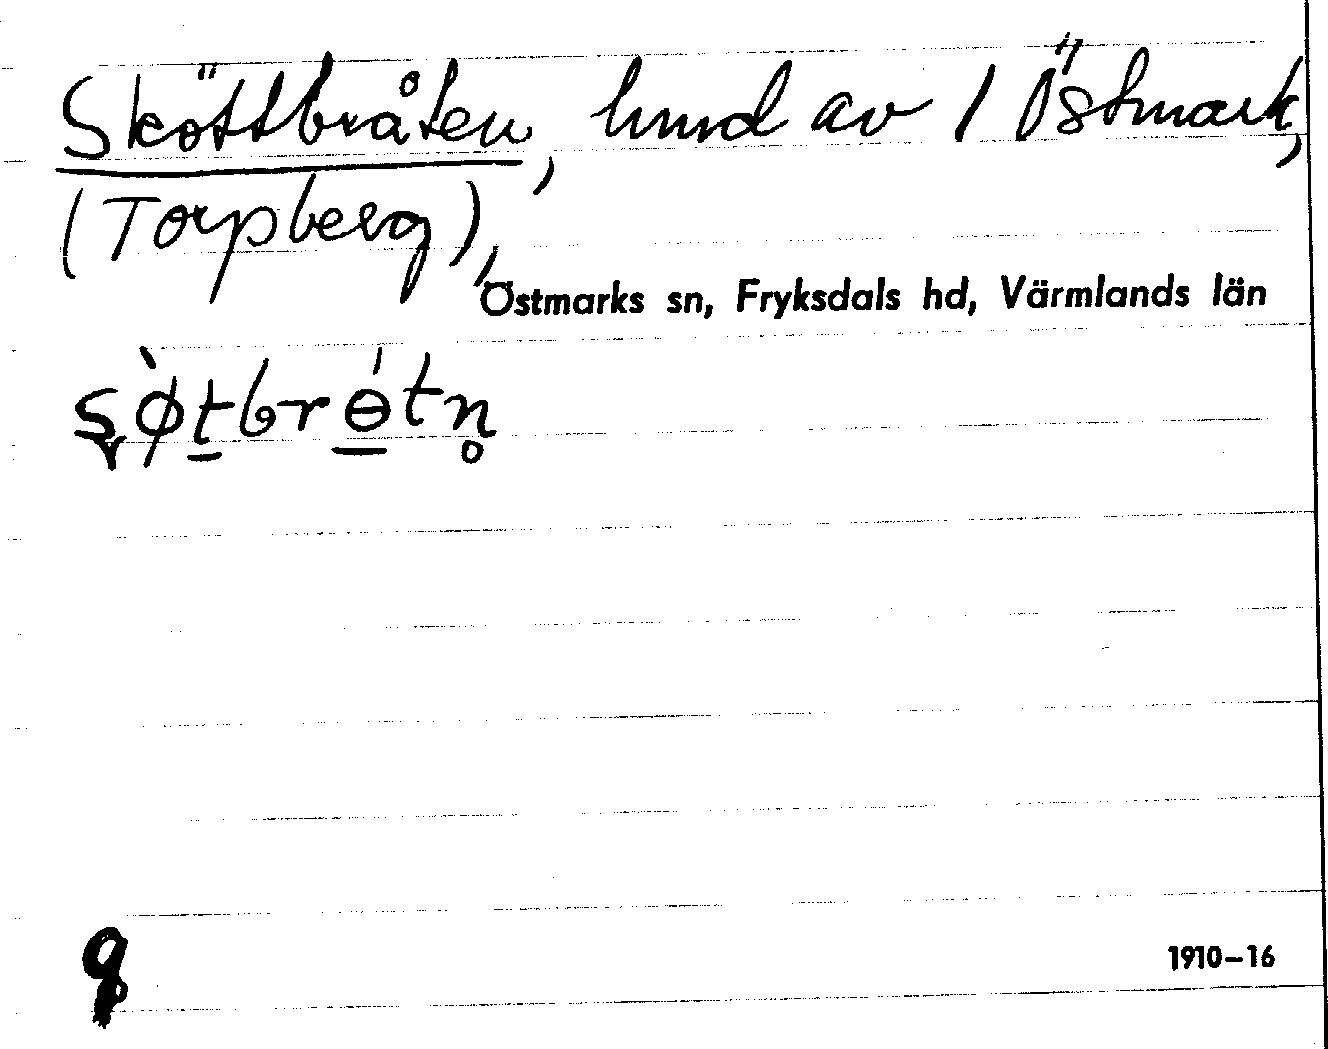 Sköttbråten, hmd av 1 Östmark,
(Torpberg),
Östmarks sn, Fryksdals hd, Värmlands län
1910-16